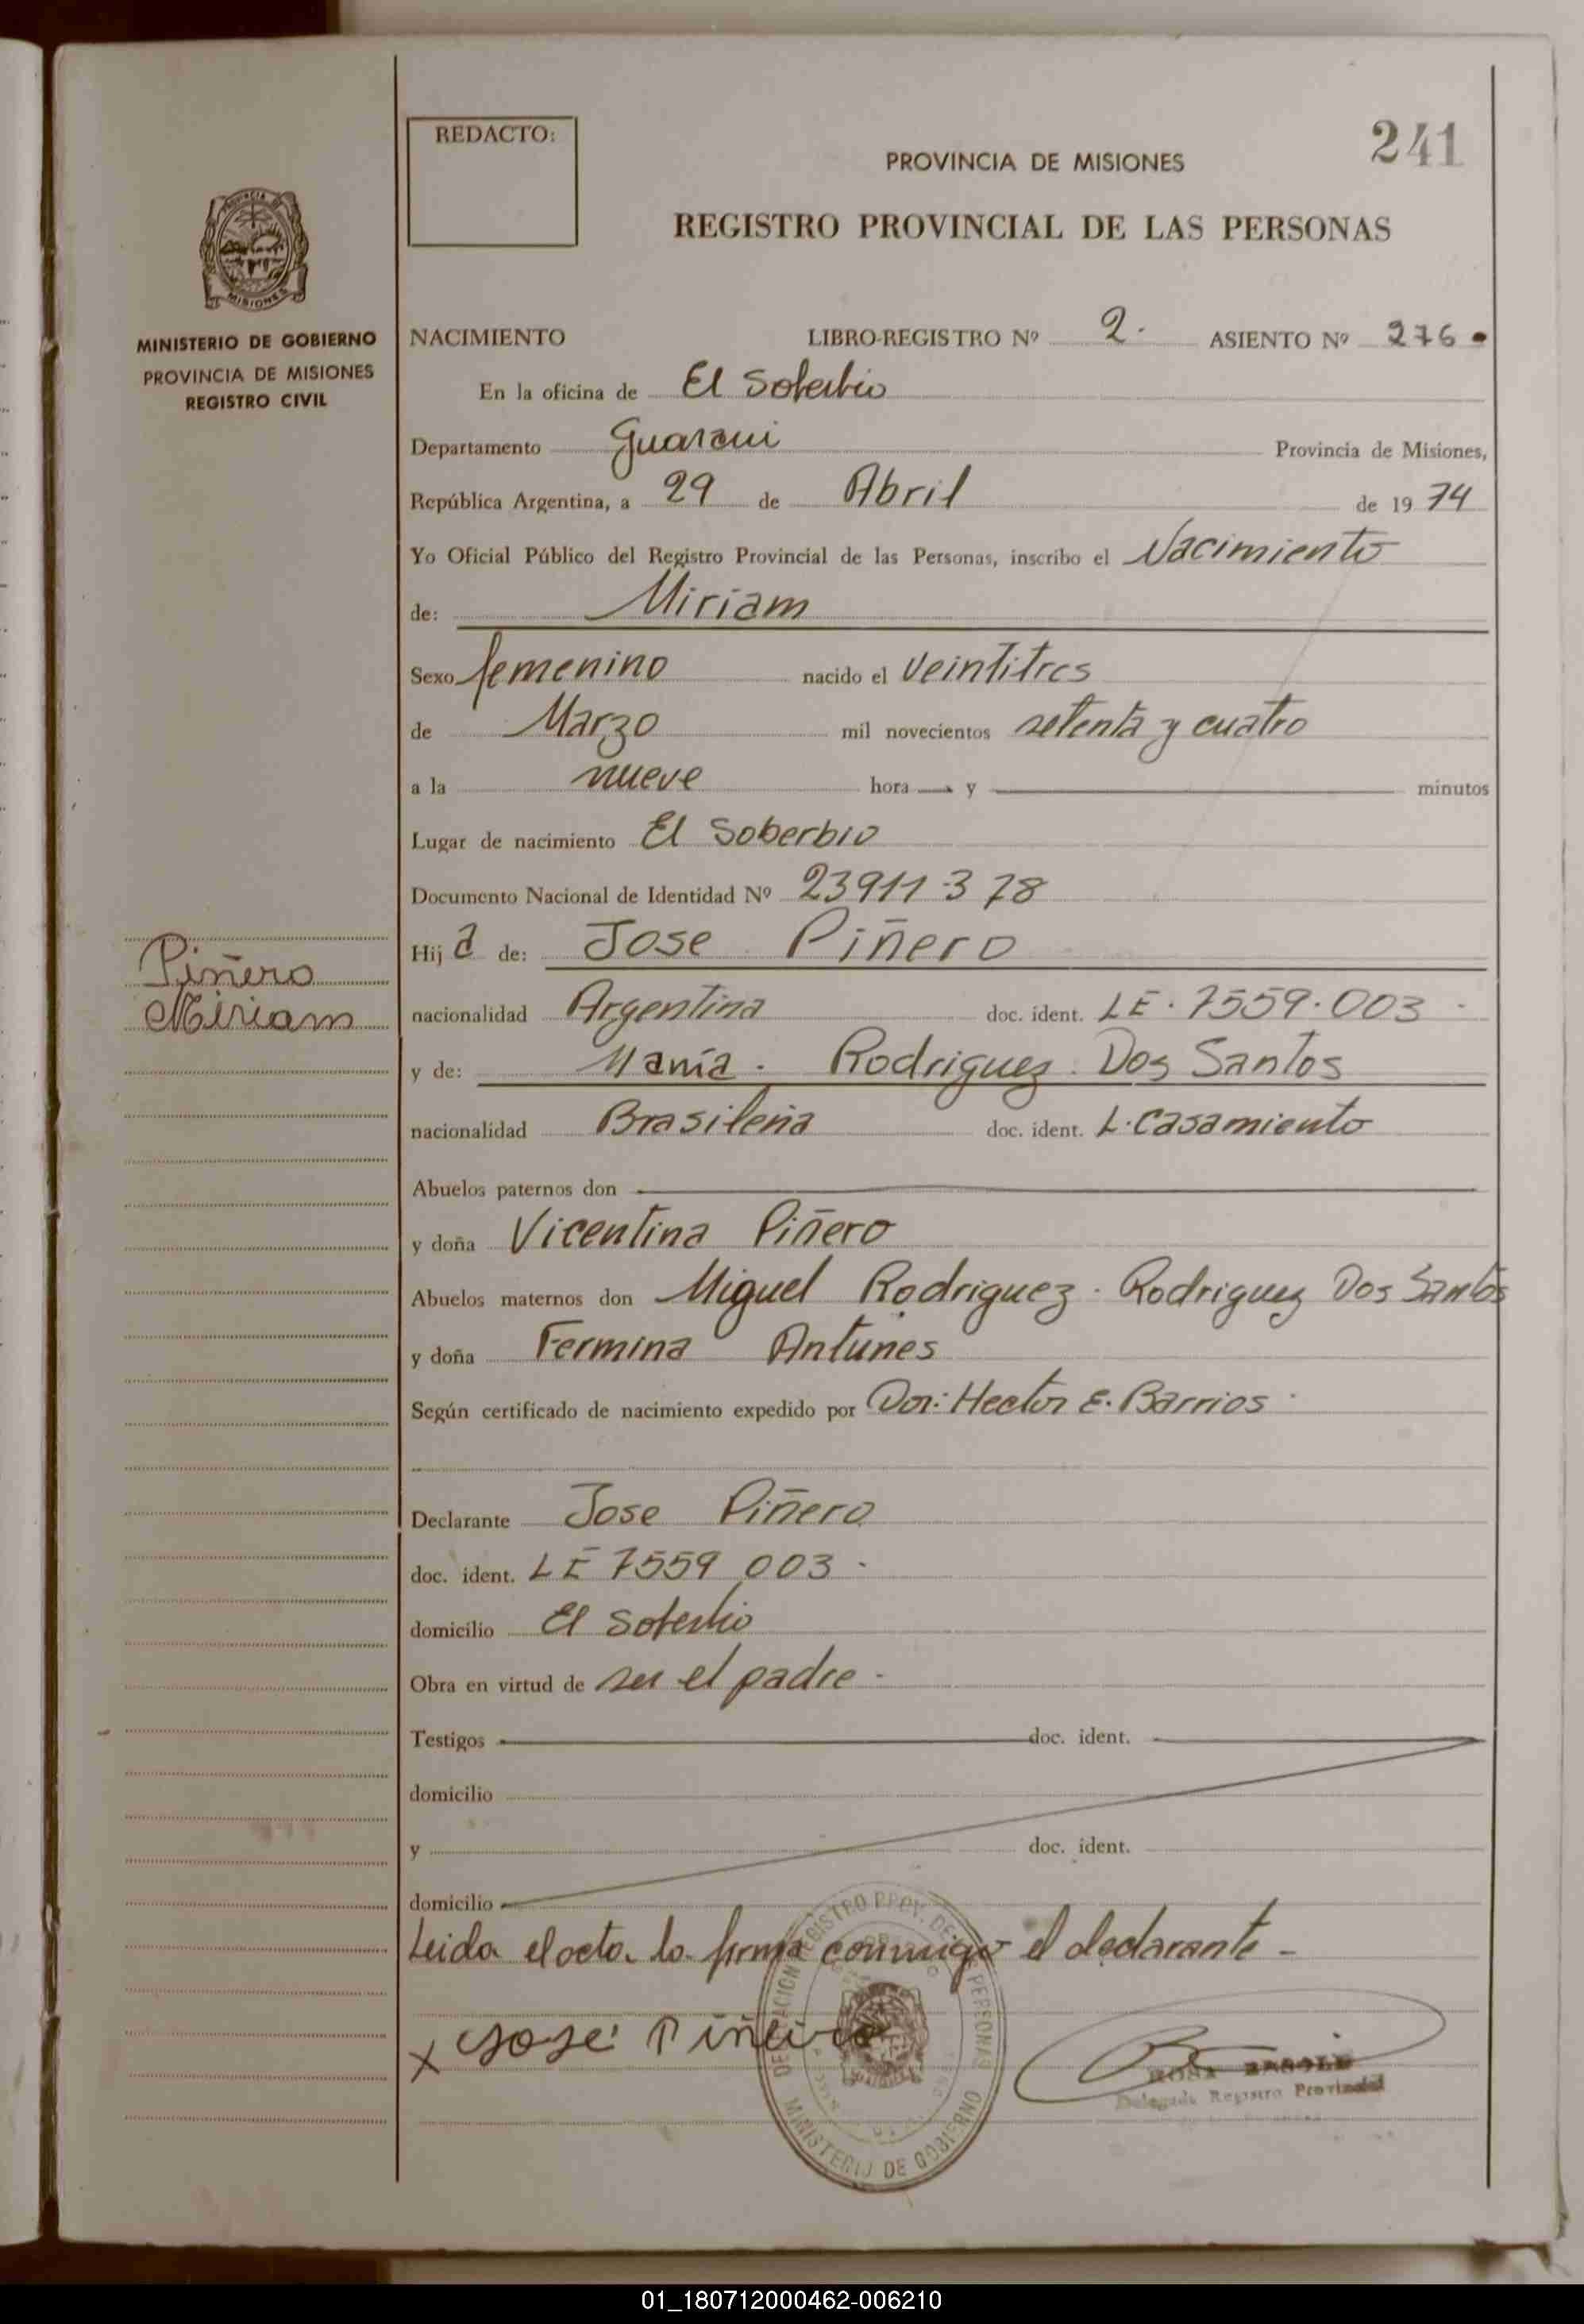 REDACTO:
241
PROVINCIA DE MISIONES
REGISTRO PROVINCIAL DE LAS PERSONAS
MISIONES
MINISTERIO DE GOBIERNO
PROVINCIA DE MISIONES
REGISTRO CIVIL
NACIMIENTO LIBRO-REGISTRO Nº 2. ASIENTO Nº 276
En la oficina de El Soberbio
Departamento Guarani Provincia de Misiones,
República Argentina, a 29 de Abril de 1974
Yo Oficial Público del Registro Provincial de las Personas, inscribo el Nacimiento
de: Miriam
Sexo femenino nacido el veintitres
de Marzo mil novecientos setenta y cuatro
a la nueve hora — y — minutos
Lugar de nacimiento El Soberbio
Documento Nacional de Identidad Nº 23911378
Hija de: Jose Piñero
Piñero
Miriam
nacionalidad Argentina doc. ident. LE. 7559.003 -
y de: Maria. Rodriguez Dos Santos
nacionalidad Brasileña doc. ident. L. Casamiento
Abuelos paternos don —
y doña Vicentina Piñero
Abuelos maternos don Miguel Rodriguez. Rodriguez Dos Santos
y doña Fermina Antunes
Según certificado de nacimiento expedido por Dor: Hector E. Barrios.
Declarante Jose Piñero
doc. ident. LE 7559 003 -
domicilio El Soberbio
Obra en virtud de ser el padre -
Testigos — doc. ident. —
domicilio
y doc. ident.
domicilio
Leida el acta. lo firma conmigo el declarante -
x Jose Piñeiro
ROSA
Delegada Registro Provincial
MINISTERIO DE GOBIERNO
01_180712000462-006210